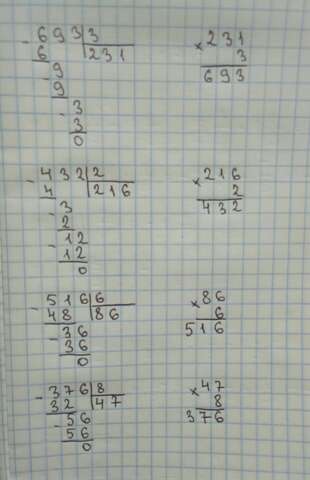 - 693 | 3 × 231
6 | 231 3
- 9 693
9
- 3
3
0
- 432 | 2 × 216
4 | 216 2
- 3 432
2
- 12
12
0
- 516 | 6 × 86
48 | 86 6
- 36 516
36
0
- 376 | 8 × 47
32 | 47 8
- 56 376
56
0